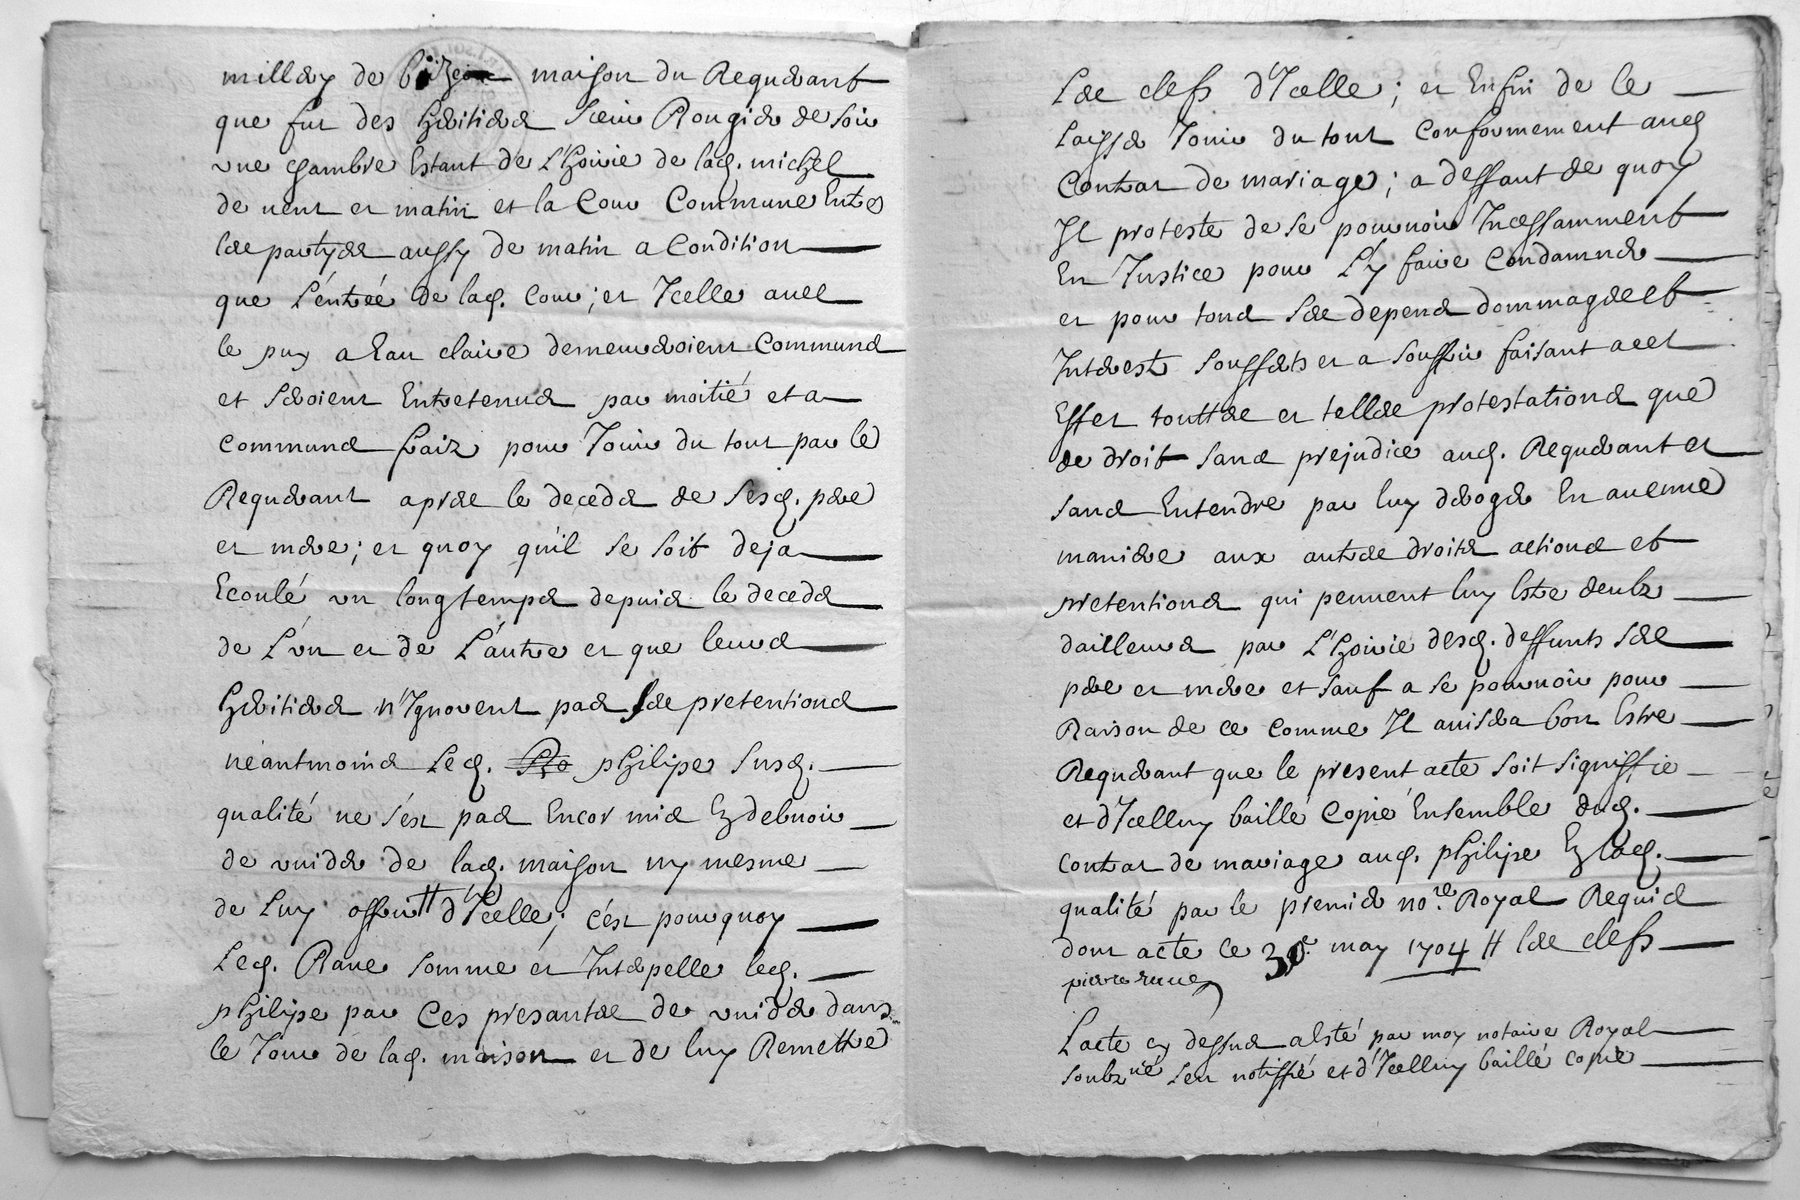 millery de maison du Requerant
que fut des heritiers Sieur Rougier de soir
vne chambre Estant de L'hoirie de lad. michel
de uent et matin et la Cour Commune Entre
les partyes aussy de matin a Condition
que L'éntreé de lad. Cour; et Jcelle auec
le puy a Eau claire demeureroient Communs
et seroient Entretenus par moitié et a
communs fraiz pour Jouir du tout par le
Requerant apres le deceds de sesd. pere
et mere; et quoy qu'il se soit deja
Ecoulé vn longtemps depuis le deceds
de L'vn et de L'autre et que leurs
heritiers n'Ignorent pas ses pretentions
néantmoins Led. philipe susd.
qualité ne s'ést pas Encor mis En debuoir
de vuider de lad. maison ny mesme
de Luy offrir H d'Jcelle; c'ést pourquoy
Led. Raue somme et Interpelle led.
philipe par Ces presantes de vuider dans
le Jour de lad. maison et de luy Remettre
Les clefs d'Jcelle; et Enfin de le
laisser Jouir du tout Conformement aud.
Contrat de mariage; a deffaut de quoy
Il proteste de se pouruoir Incessamment
En Justice pour L'y faire Condamner
et pour tous ses depens dommages et
Interests soufferts et a souffrir faisant a cet
Effet touttes et telles protestations que
de droit sans prejudice aud. Requerant et
sans Entendre par luy deroger En aucune
maniere aux autres droits actions et
pretentions qui peuuent luy Estre deubz
dailleurs par L'hoirie desd. deffunts ses
pere et mere et sauf a se pouruoir pour
Raison de ce comme Il auisera bon Estre
Requerant que le present acte soit signiffie
et d'Jcelluy baillé Copie Ensemble dud.
contrat de mariage aud. philipe En lad.
qualité par le premier no.re Royal Requis
dont acte ce 30e. may 1704 H les clefs
pierre raue
L'acte cy dessus a esté par moy notaire Royal
soubz.né seu notiffié et d'Jcelluy baillé copie